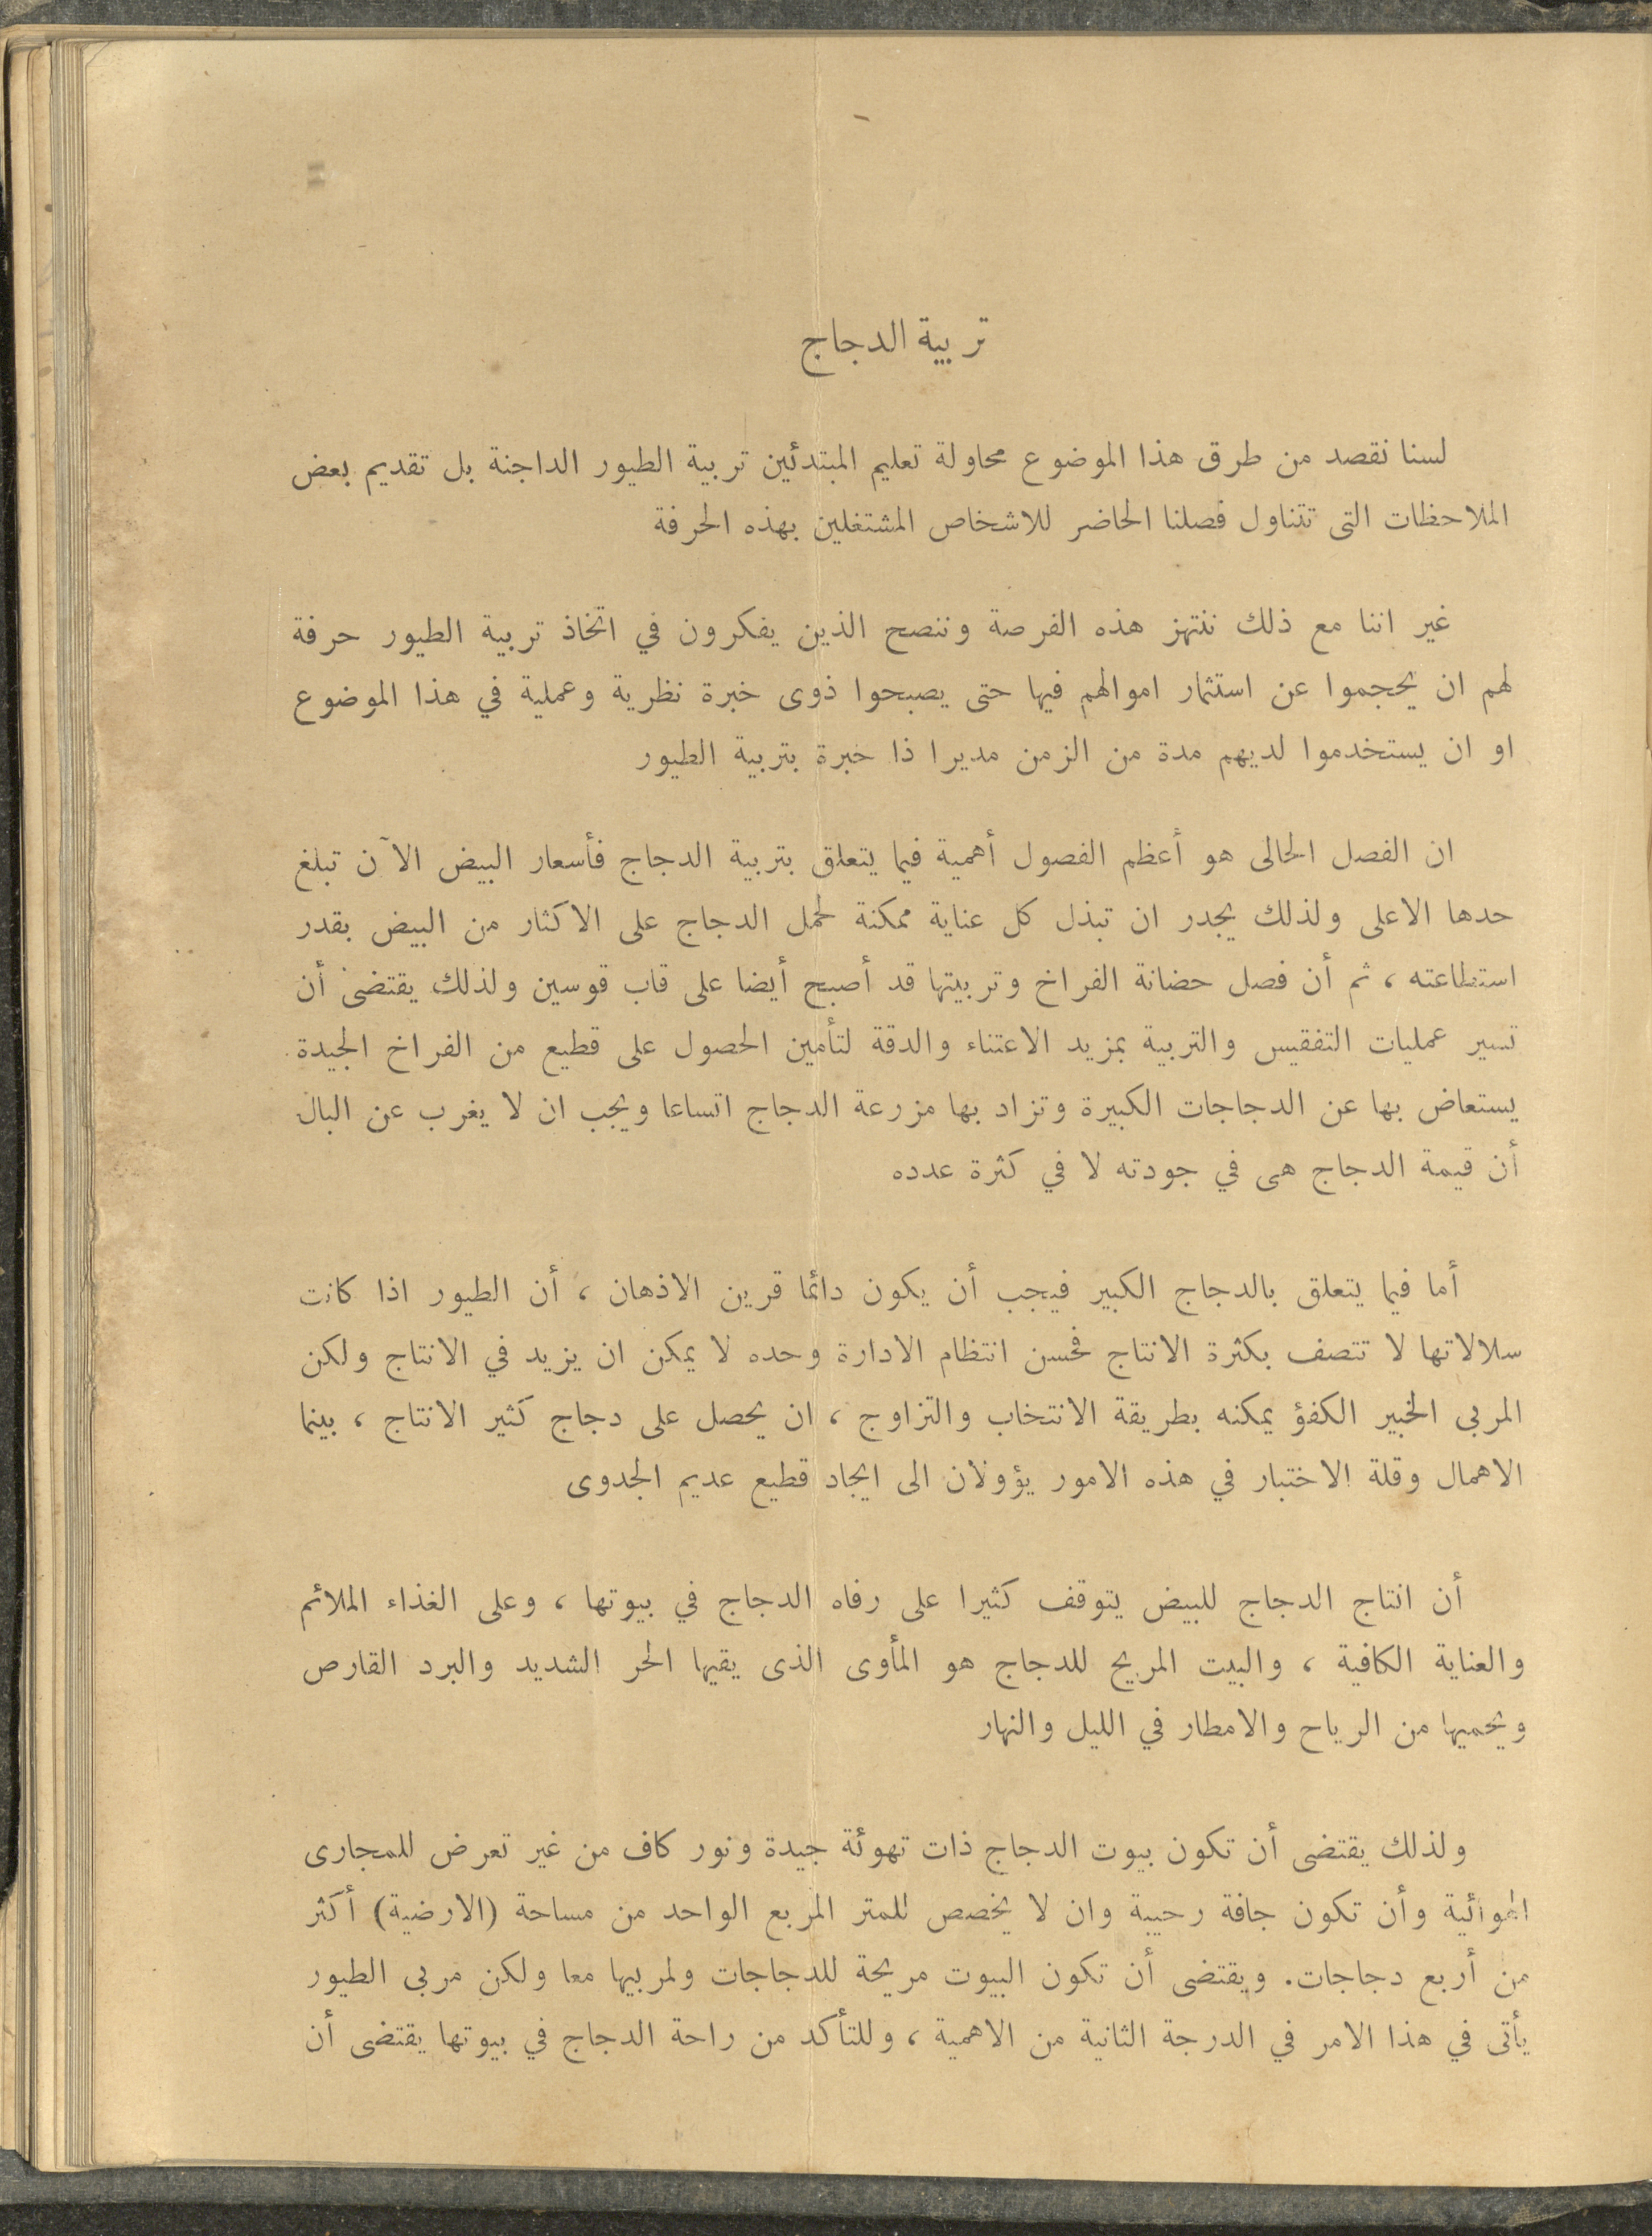 تربية الدجاج
لسنا نقصد من طرق هذا الموضوع محاولة تعليم المبتدئين تربية الطيور الداجنة بل تقديم بعض
الملاحظات التى تتناول فصلنا الحاضر للاشخاص المشتغلين بهذه الحرفة
غير اننا مع ذلك ننتهز هذه الفرصة وننصح الذين يفكرون في اتخاذ تربية الطيور حرفة
لهم ان يحجموا عن استثمار اموالهم فيها حتى يصبحوا ذوى خبرة نظرية وعملية في هذا الموضوع
او ان يستخدموا لديهم مدة من الزمن مديرا ذا خبرة بتربية الطيور
ان الفصل الحالى هو أعظم الفصول أهمية فيما يتعلق بتربية الدجاج فأسعار البيض الآن تبلغ
حدها الاعلى ولذلك يجدر ان تبذل كل عناية ممكنة لحمل الدجاج على الاكثار من البيض بقدر
استطاعته ، ثم أن فصل حضانة الفراخ وتربيتها قد أصبح أيضا على قاب قوسين ولذلك يقتضى أن
تسير عمليات التفقيس والتربية بمزيد الاعتناء والدقة لتأمين الحصول على قطيع من الفراخ الجيدة
يستعاض بها عن الدجاجات الكبيرة وتزاد بها مزرعة الدجاج اتساعا ويجب ان لا يغرب عن البال
أن قيمة الدجاج هى في جودته لا في كثرة عدده
أما فيما يتعلق بالدجاج الكبير فيجب أن يكون دائما قرين الاذهان ، أن الطيور اذا كانت
سلالاتها لا تتصف بكثرة الانتاج فحسن انتظام الادارة وحده لا يمكن ان يزيد في الانتاج ولكن
المربى الخبير الكفؤ يمكنه بطريقة الانتخاب والتزاوج ، ان يحصل على دجاج كثير الانتاج ، بينما
الاهمال وقلة الاختبار في هذه الامور يؤولان الى ايجاد قطيع عديم الجدوى
أن انتاج الدجاج للبيض يتوقف كثيرا على رفاه الدجاج في بيوتها ، وعلى الغذاء الملائم
والعناية الكافية ، والبيت المريح للدجاج هو المأوى الذى يقيها الحر الشديد والبرد القارص
ويحميها من الرياح والامطار في الليل والنهار
ولذلك يقتضى أن تكون بيوت الدجاج ذات تهوئة جيدة ونور كاف من غير تعرض للمجارى
الهوائية وأن تكون جافة رحيبة وان لا يخصص للمتر المربع الواحد من مساحة (الارضية) أكثر
من أربع دجاجات. ويقتضى أن تكون البيوت مريحة للدجاجات ولمربيها معا ولكن مربى الطيور
يأتى في هذا الامر في الدرجة الثانية من الاهمية ، وللتأكد من راحة الدجاج في بيوتها يقتضى أن